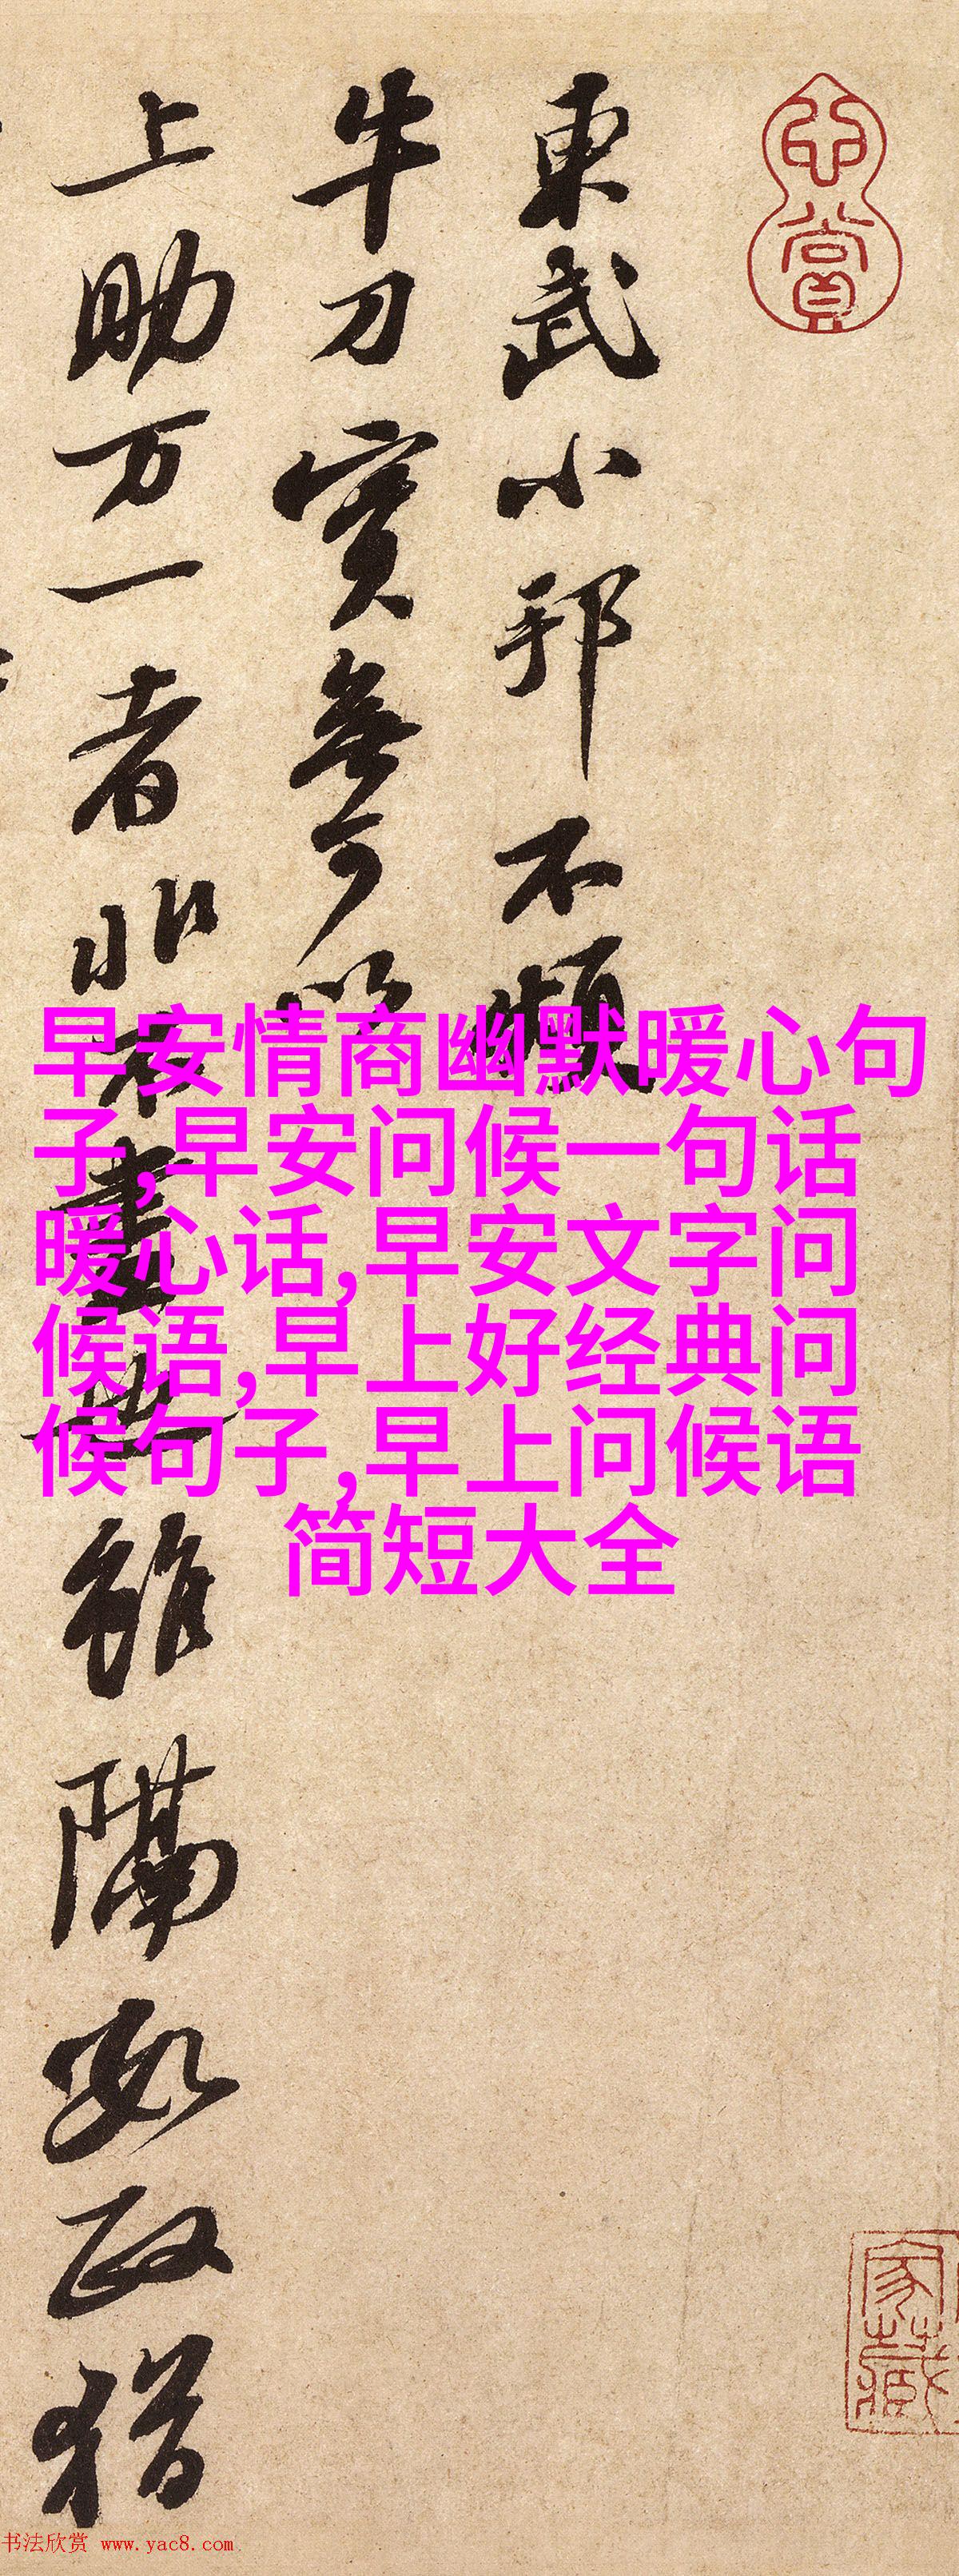 心賞
東武小邦不煩
牛刀實無可以
上助万一者非不盡也雖隔數政猶
家藏
早安情商幽默暖心句
子,早安问候一句话
暖心话,早安文字问
候语,早上好经典问
候句子,早上问候语
简短大全
书法欣赏 www.yac8.com